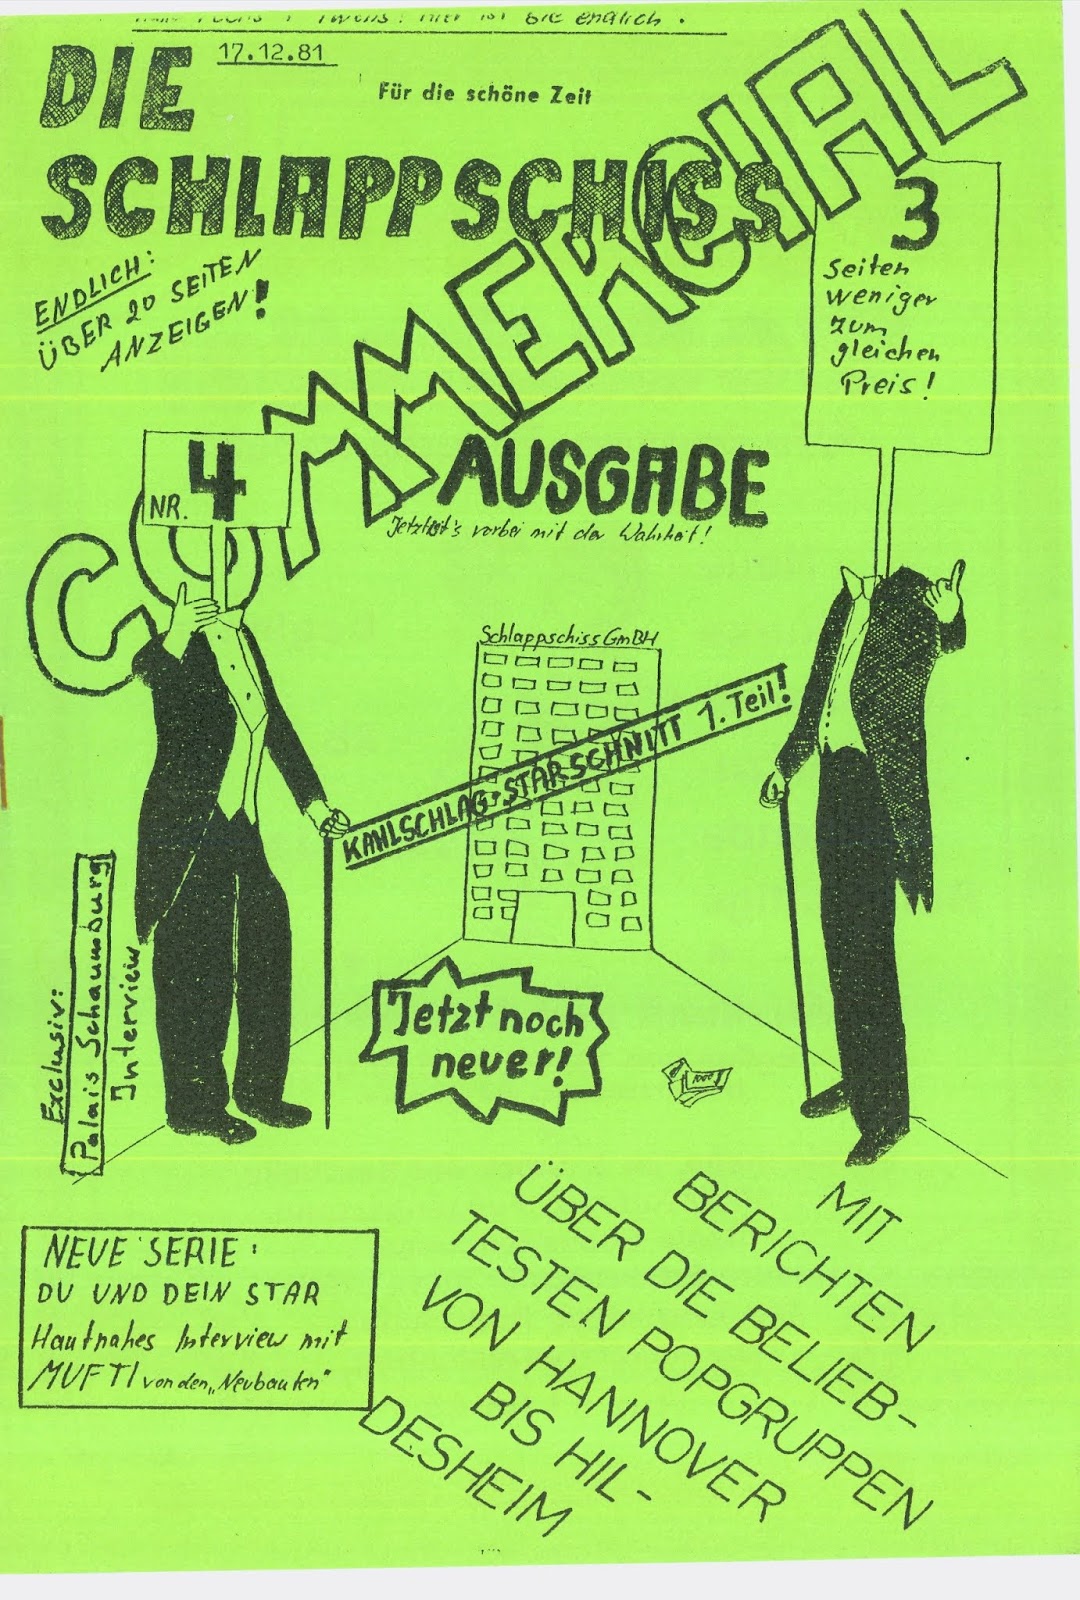 ! hier ist sie endlich.
17.12.81
Für die schöne Zeit
DIE
SCHLAPPSCHISS
COMMERCIAL
AUSGABE
Jetzt ist's vorbei mit der Wahrheit!
ENDLICH:
ÜBER 20 SEITEN
ANZEIGEN!
3
Seiten
weniger
zum
gleichen
Preis!
NR. 4
Schlappschiss GmBH
KAHLSCHLAG-STARSCHNITT 1. Teil!
Exclusiv:
Palais Schaumburg
Interview
Jetzt noch
neuer!
1000
NEUE SERIE:
DU UND DEIN STAR
Hautnahes Interview mit
MUFTI von den „Neubauten"
MIT
BERICHTEN
ÜBER DIE BELIEB-
TESTEN POPGRUPPEN
VON HANNOVER
BIS HIL-
DESHEIM